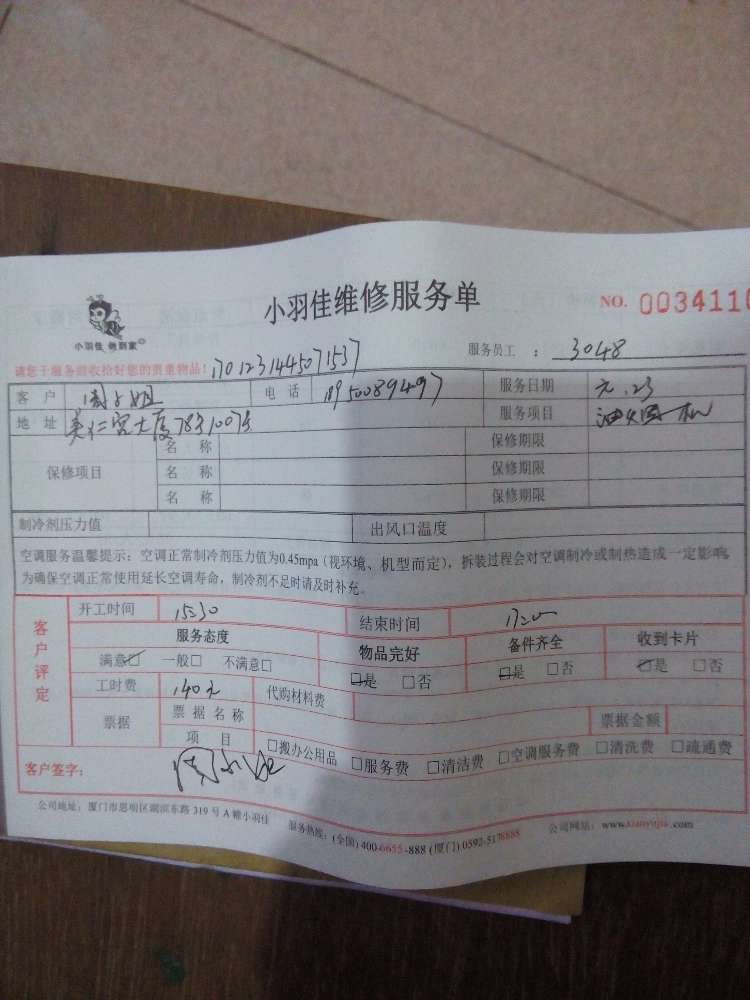 小羽佳维修服务单
NO. 0034110
小羽佳 做到家
服务员工 : 3048
请您于服务前收拾好您的贵重物品! 1701231445071537
客户 周小姐 电话 18950089497 服务日期 元.23
地址 美仁宫大厦 服务项目 油烟机
保修项目 名称 保修期限
名称 保修期限
名称 保修期限
制冷剂压力值 出风口温度
空调服务温馨提示:空调正常制冷剂压力值为0.45mpa(视环境、机型而定),拆装过程会对空调制冷或制热造成一定影响,
为确保空调正常使用延长空调寿命,制冷剂不足时请及时补充。
客户评定
开工时间 15:30 结束时间 17:00
服务态度 物品完好 备件齐全 收到卡片
满意☑ 一般□ 不满意□ ☑是 □否 ☑是 □否 ☑是 □否
工时费 140元 代购材料费
票据 票据名称 票据金额
项目 □搬办公用品 □服务费 □清洁费 □空调服务费 □清洗费 □疏通费
客户签字: 周小姐
公司地址:厦门市思明区湖滨东路 319 号 A 幢小羽佳 服务热线:(全国) 400-6655-888 (厦门) 0592-5178888 公司网站:www.xiaoyujia.com